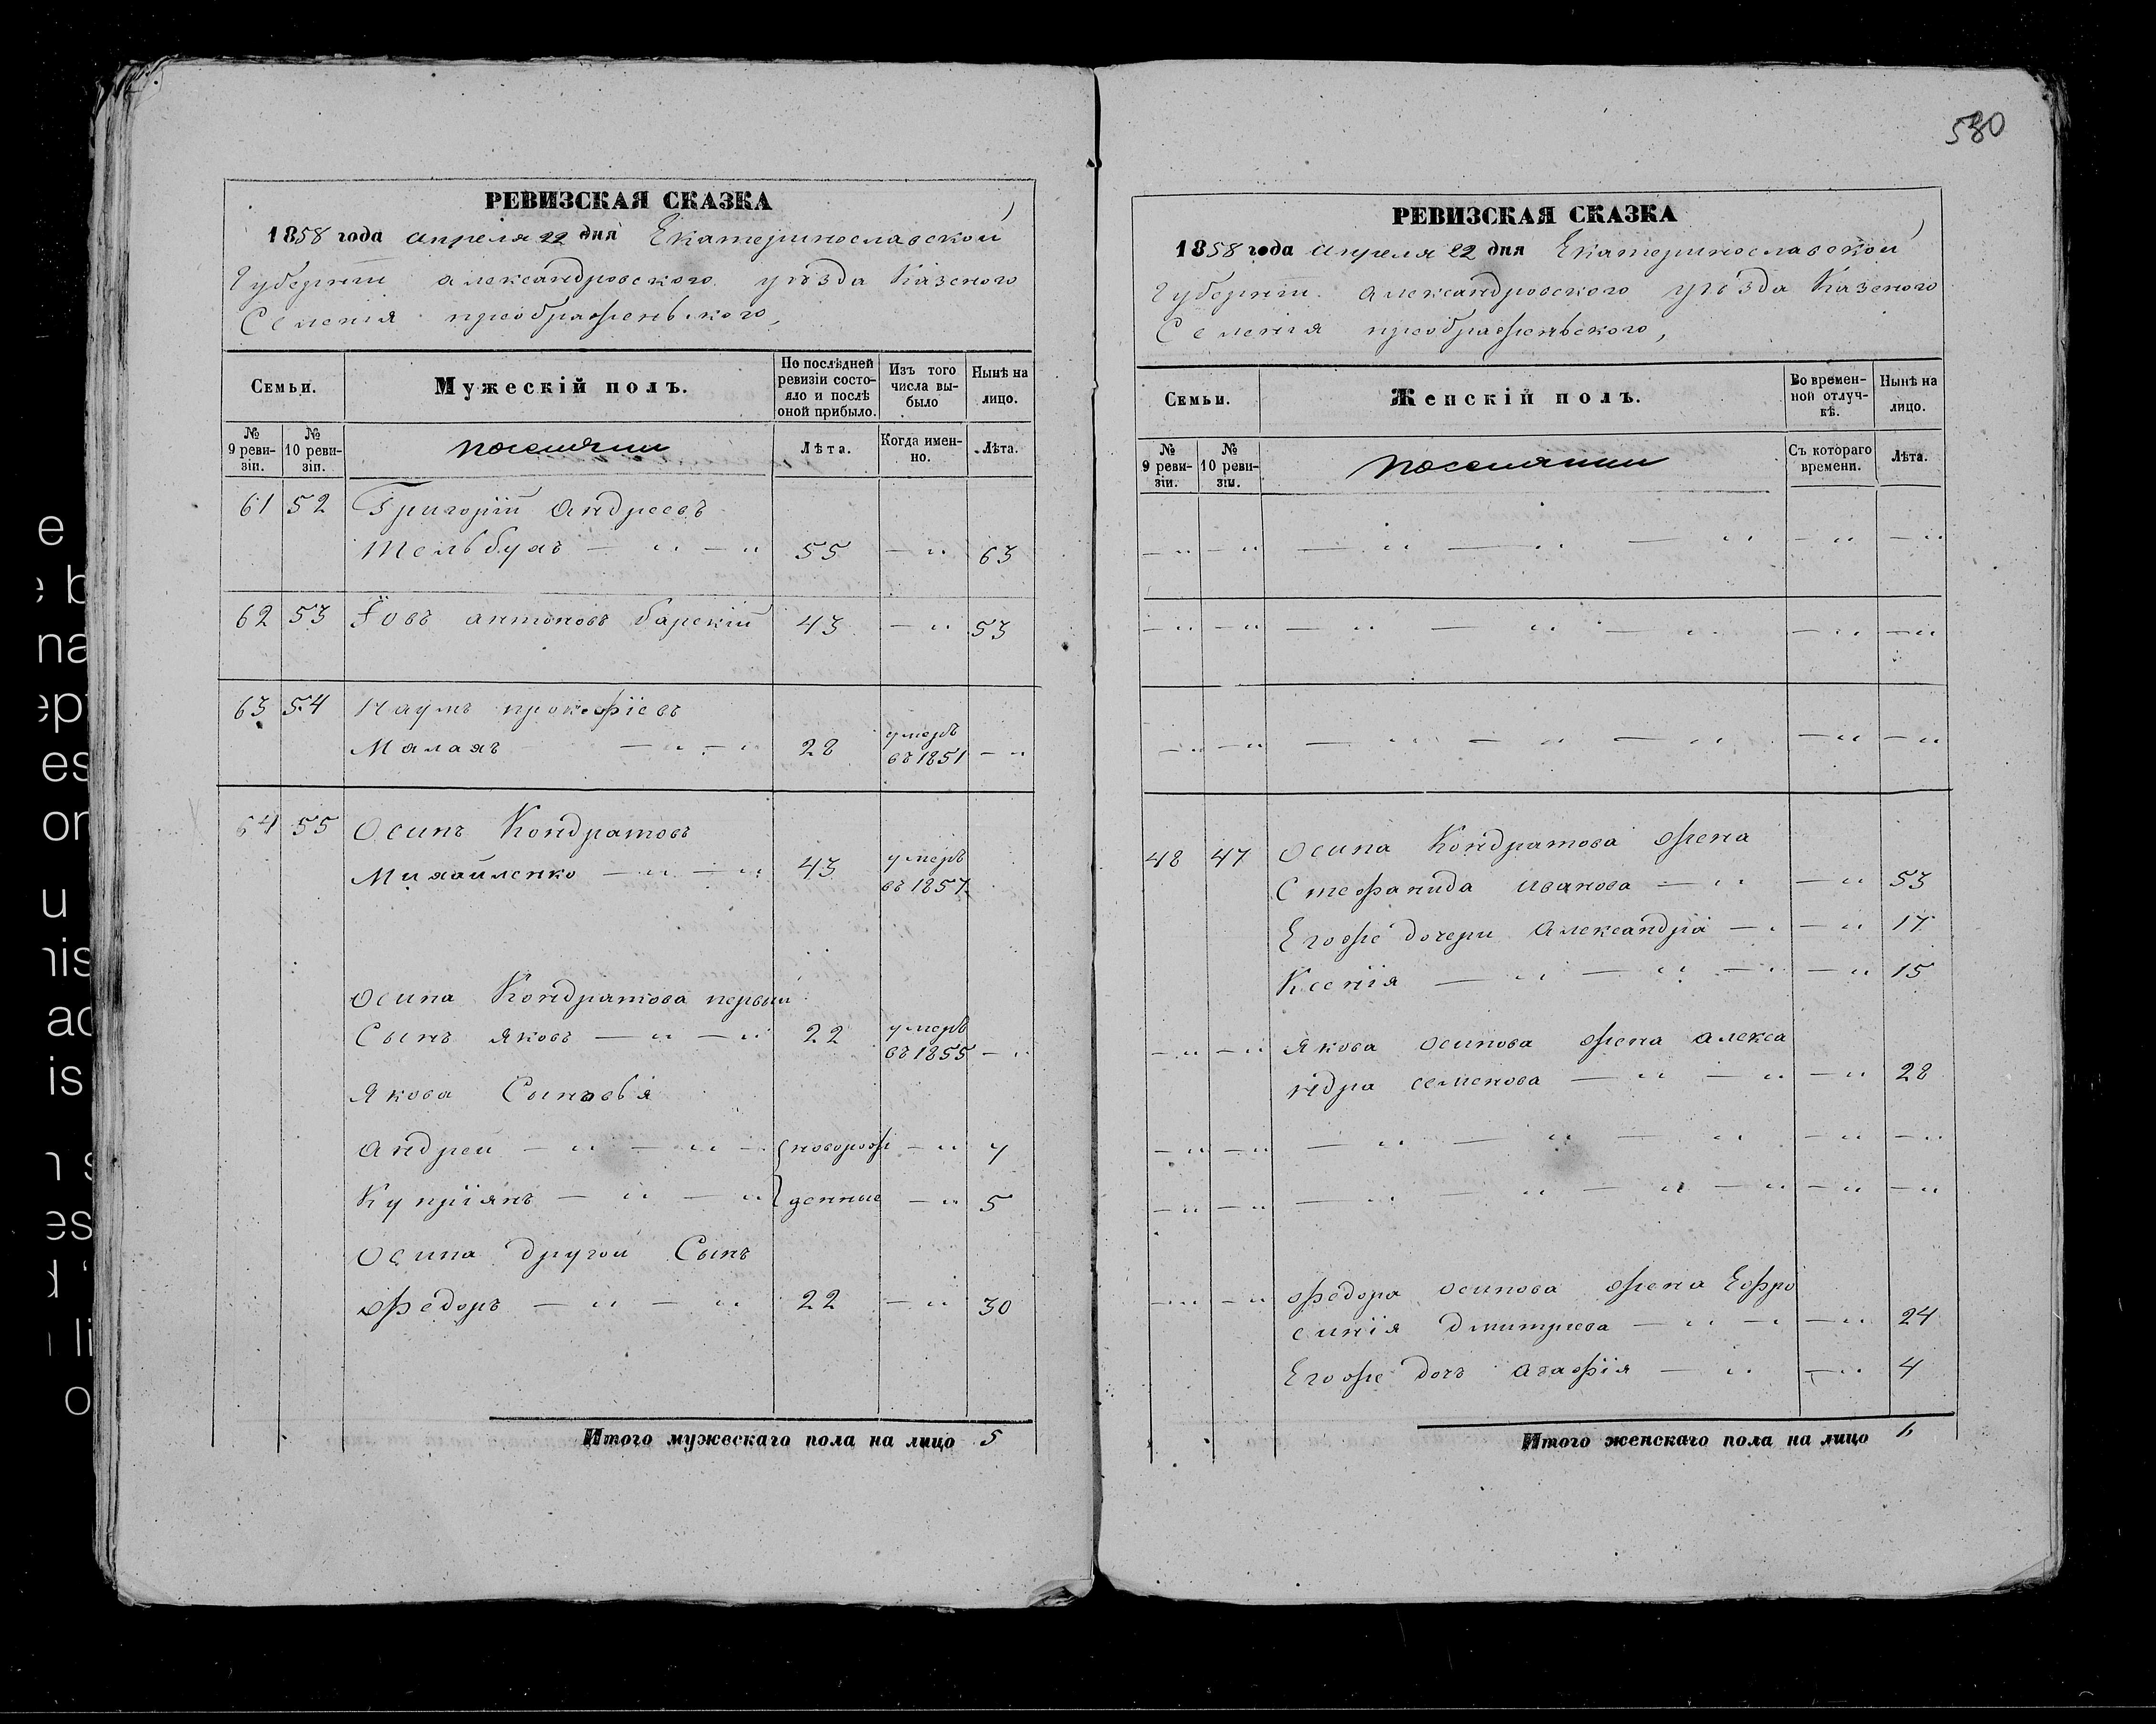 580
РЕВИЗСКАЯ СКАЗКА
1858 года апреля 22 дня Екатеринославской
Губернiи александровского уѣзда Казеного
Селенiя преображенского,
Семьи.
Мужескiй полъ.
По послѣдней ревизiи состояло и послѣ оной прибыло.
Изъ того числа выбыло
Нынѣ на лицо.
№ 9 ревизiи.
№ 10 ревизiи.
поселяни
Лѣта.
Когда именно.
Лѣта.
61 52 Григорiй Андреевъ
— " — " 55 — " 63
62 53 Iовъ антоновъ барскiй 43 — " 53
63 54 Наумъ прокофiевъ
Малаяъ — " — " 28 умеръ въ 1851 — "
64 55 Осипъ Кондратовъ
Михайленко — " — " 43 умеръ въ 1857
Осипа Кондратова первыи
Сынъ яковъ — " — " 22 умеръ въ 1855 — "
Якова Сыновья
Андреи — " — " — новорож — " 7
Купрiянъ — " — " денние — " 5
Осипа другои Сынъ
Федоръ — " — " 22 — " 30
Итого мужескаго пола на лицо 5
РЕВИЗСКАЯ СКАЗКА
1858 года апреля 22 дня Екатеринославской
Губернiи александровского уѣзда Казеного
Селенiя преображенского,
Семьи.
Женскiй полъ.
Во временной отлучкѣ.
Нынѣ на лицо.
№ 9 ревизiи.
№ 10 ревизiи.
поселянки
Съ котораго времени.
Лѣта.
— " — " — " — " — " — " — "
— " — " — " — " — " — " — "
— " — " — " — " — " — " — "
48 47 Осипа Кондратова жена
Стефанида иванова — " — " 53
Егоже дочери Александра — " — " 17
Ксенiя — " — " — " — " 15
— " — " Якова осипова жена алекса
ндра семенова — " — " — " 28
— " — " — " — " — " — " — "
— " — " — " — " — " — " — " — "
— " — " Федора осипова жена Ефро
синiя дмитриева — " — " — " 24
Егоже дочъ агафiя — " — " 4
Итого женскаго пола на лицо 6